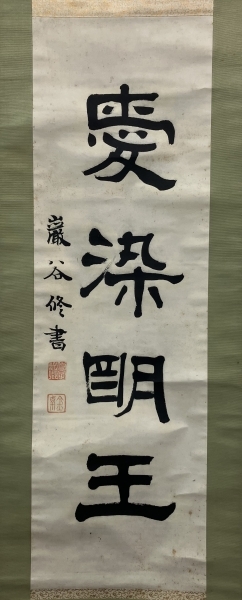 愛染明王
巖谷修書